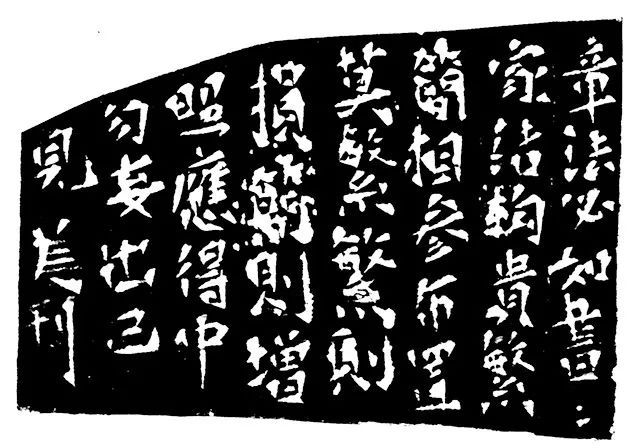 章法必如畫〻
家結構貴繁
簡相參布置
莫繁繁則
損簡則增
照應得中
勿妄出己
見刊